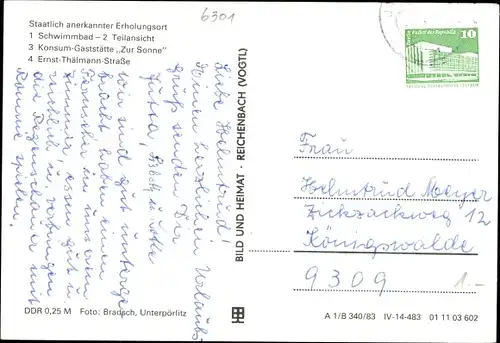 Staatlich anerkannter Erholungsort
1 Schwimmbad – 2 Teilansicht
3 Konsum-Gaststätte „Zur Sonne"
4 Ernst-Thälmann-Straße
6301
Liebe Helmtrud!
Einen herzlichen Urlaubs-
gruß senden Dir
Jutta, u.
Wir sind gut unterge-
bracht haben einen
Fernseher in unserem
Zimmer, essen gut u.
reichlich u.
die Regenschauer mit
Romme spielen.
DDR 0,25 M Foto: Bradsch, Unterpörlitz
BILD UND HEIMAT · REICHENBACH (VOGTL)
10
Palast der Republik
Frau
Helmtrud Meyer
Zickzackweg 12
Königswalde
9309
1.-
A 1/B 340/83 IV-14-483 01 11 03 602